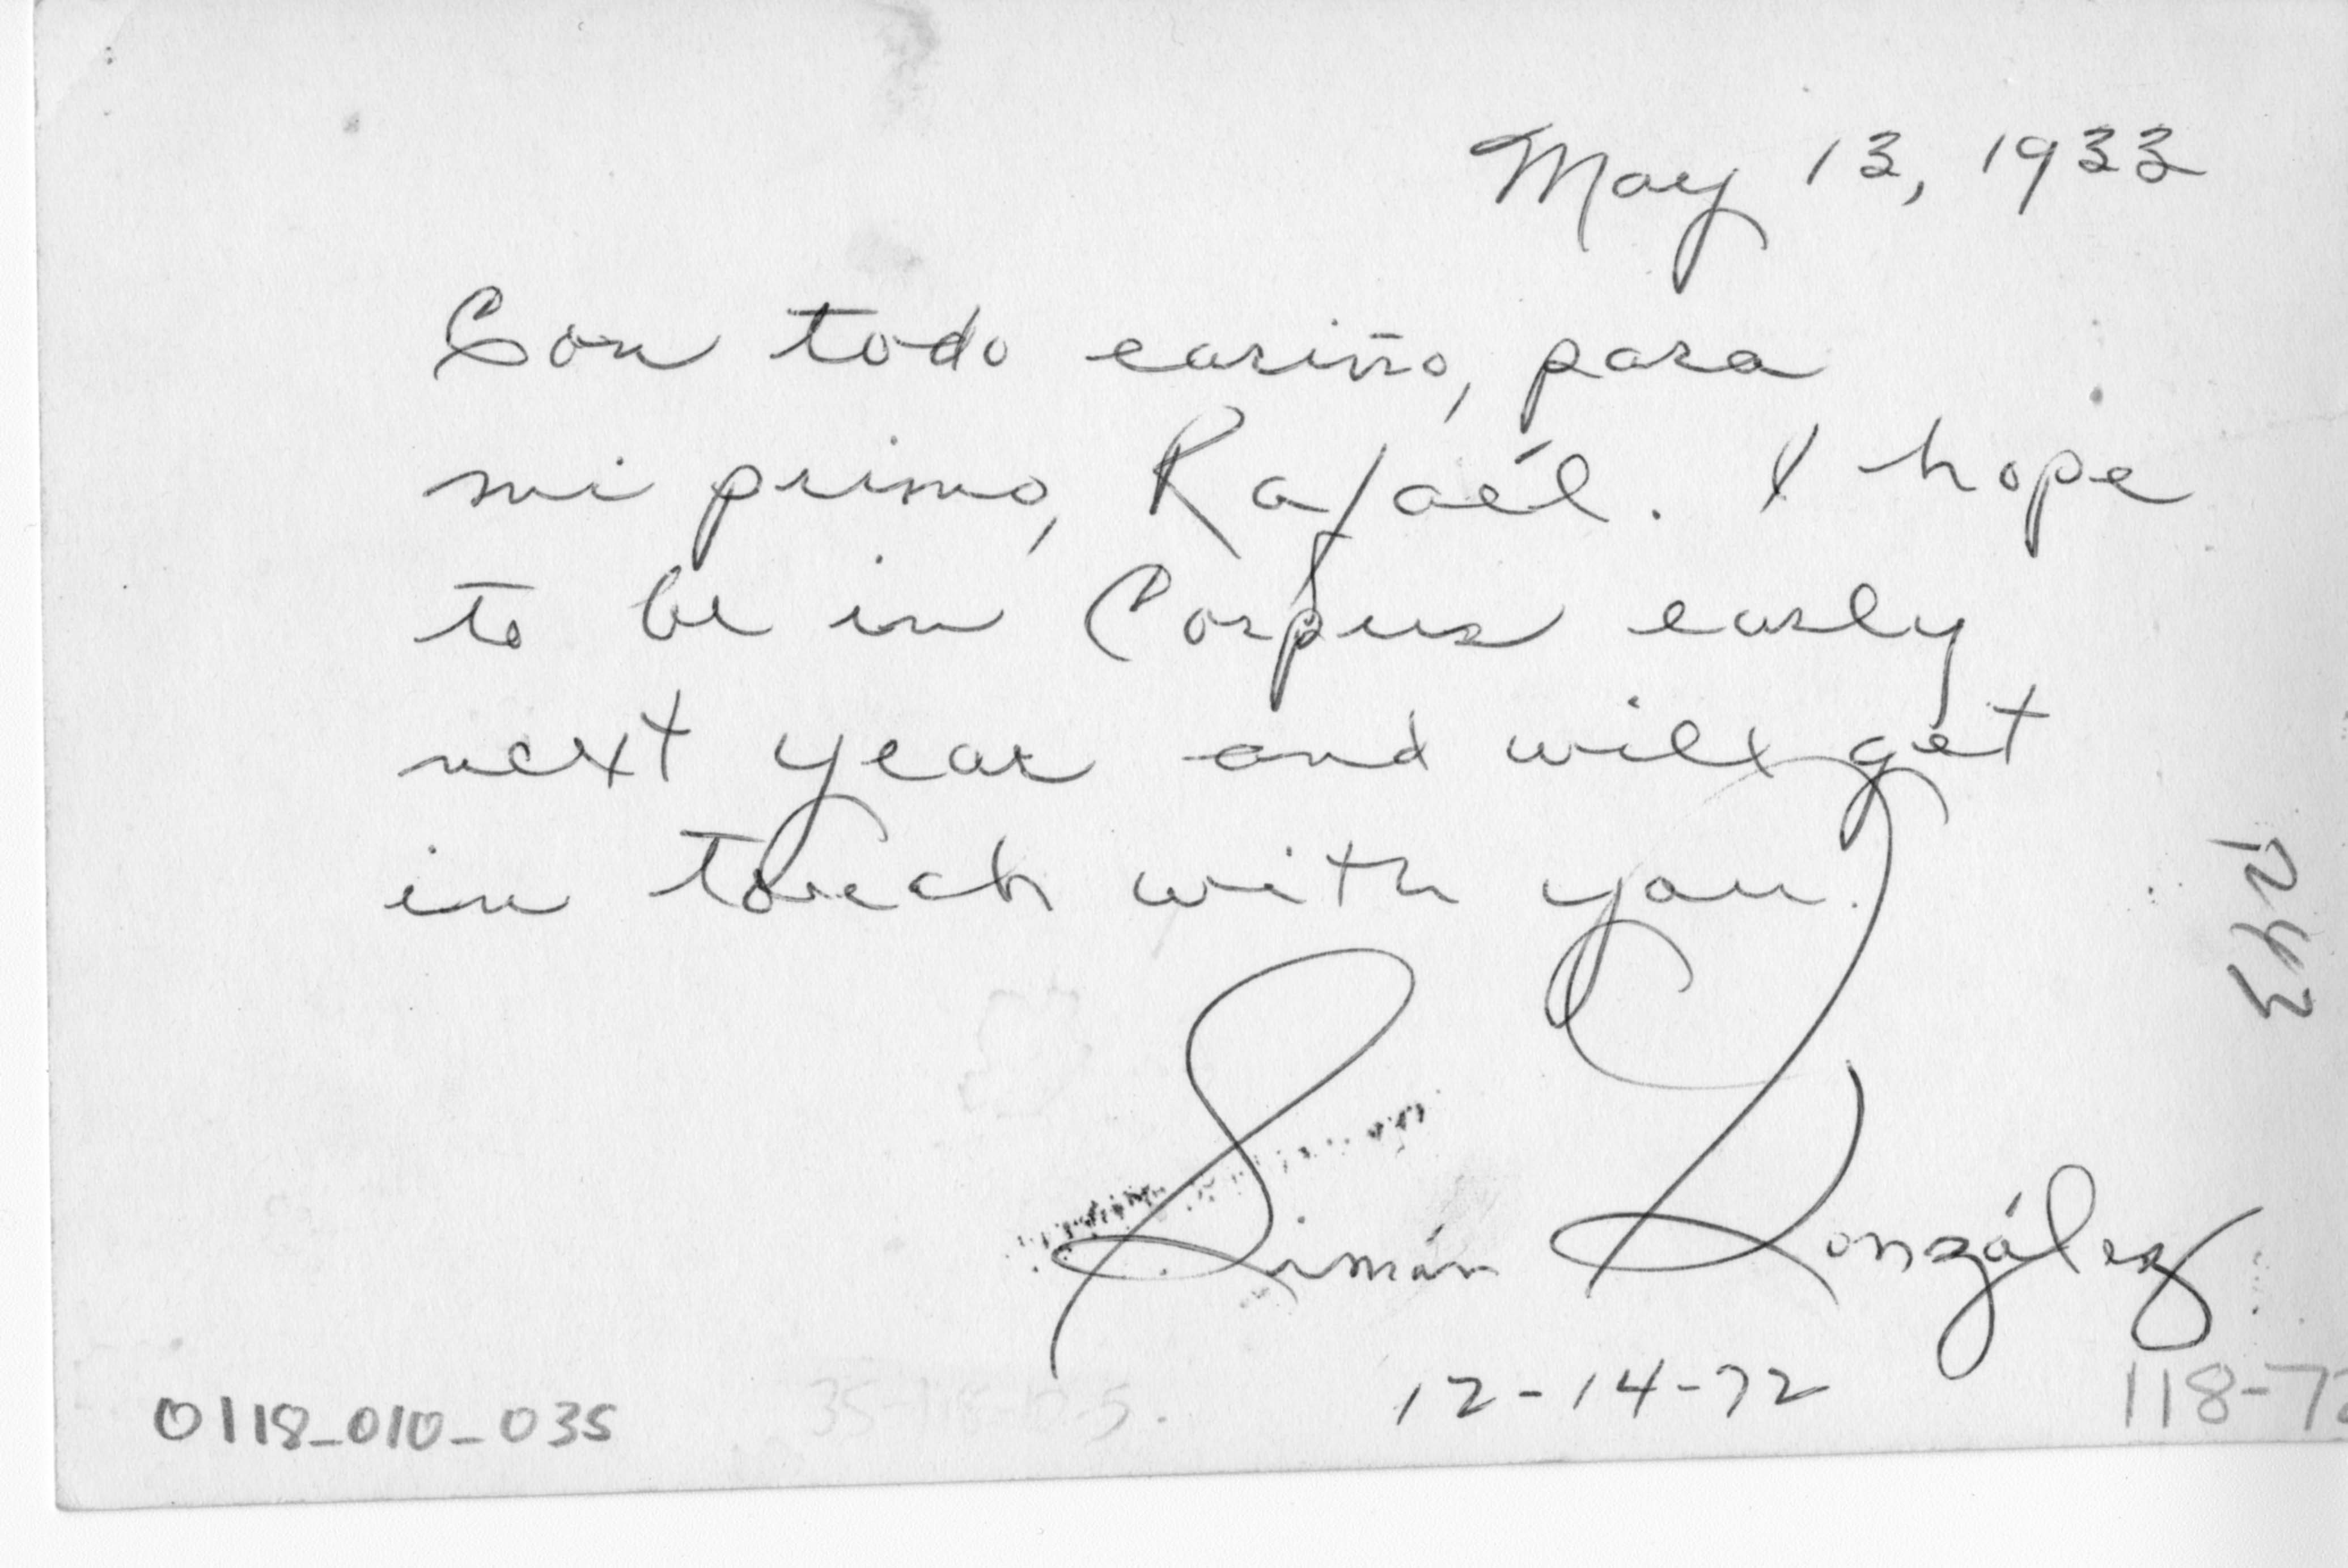 May 13, 1933
Con todo cariño, para
mi primo, Rafaél. I hope
to be in Corpus early
next year and will get
in touch with you.
Simón González
12-14-72
0118_010_035
118-72